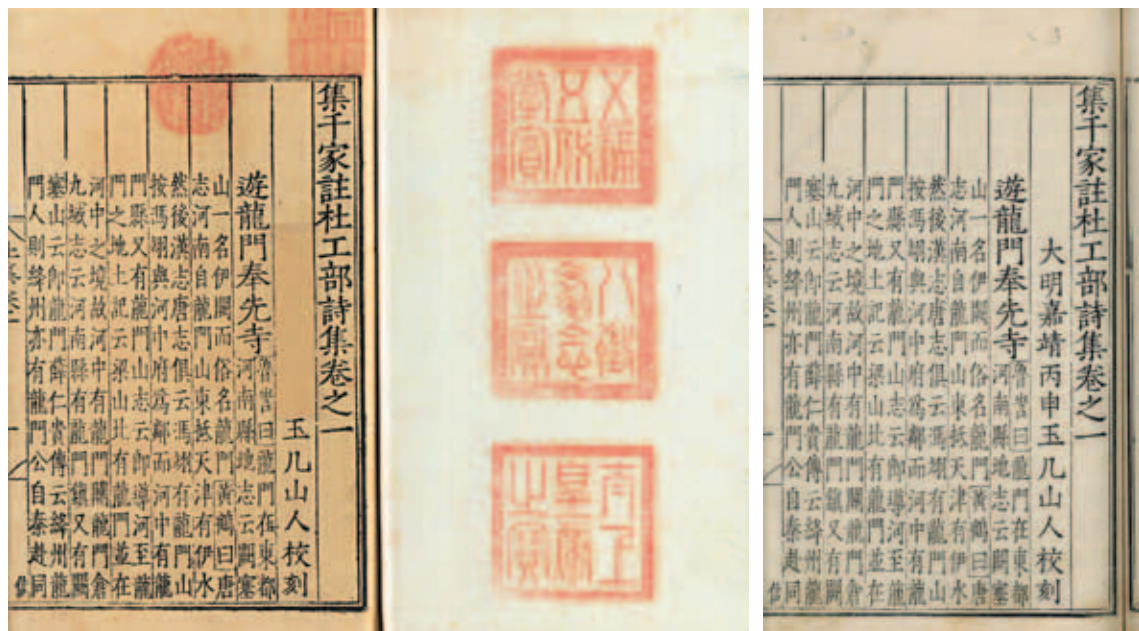 集千家註杜工部詩集卷之一
玉几山人校刻
遊龍門奉先寺
魯訔曰龍門在東都
河南縣地志云闕塞
山一名伊闕而俗名龍門黃鶴曰唐
志河南自龍門山東抵天津有伊水
然後漢志唐志俱云馮翊有龍門山
按馮翊與河中府爲鄰而河中有龍
門縣又有龍門山志云卽導河至龍
門之地土記云梁山北有龍門並在
河中之境故河中有龍門關龍門倉
九域志云河南縣有龍門鎮又有闕
塞山云卽龍門薛仁貴傳云絳州龍
門人則絳州亦有龍門公自秦赴同
五福
五代
堂寶
八徵
耄念
之寶
太上
皇帝
之寶
集千家註杜工部詩集卷之一
大明嘉靖丙申玉几山人校刻
遊龍門奉先寺
魯訔曰龍門在東都
河南縣地志云闕塞
山一名伊闕而俗名龍門黃鶴曰唐
志河南自龍門山東抵天津有伊水
然後漢志唐志俱云馮翊有龍門山
按馮翊與河中府爲鄰而河中有龍
門縣又有龍門山志云卽導河至龍
門之地土記云梁山北有龍門並在
河中之境故河中有龍門關龍門倉
九域志云河南縣有龍門鎮又有闕
塞山云卽龍門薛仁貴傳云絳州龍
門人則絳州亦有龍門公自秦赴同